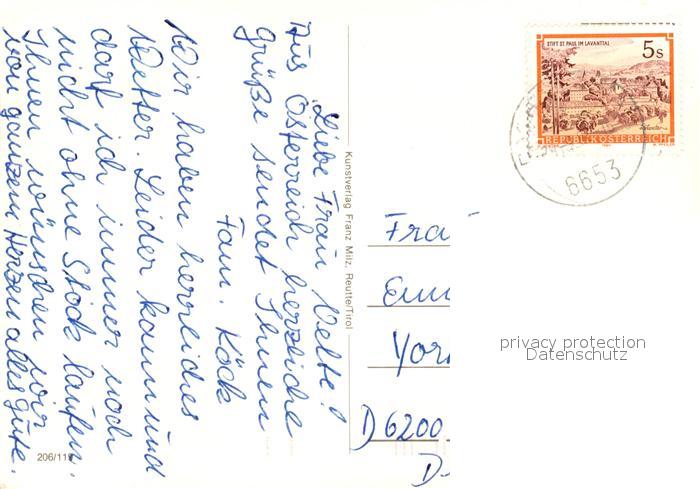 Liebe Frau Velte!
Aus Österreich herzliche
Grüße sendet Ihnen
Fam. Köck
Wir haben herrliches
Wetter. Leider kann und
darf ich immer noch
nicht ohne Stock laufen.
Ihnen wünschen wir
von ganzem Herzen alles Gute.
206/11
Kunstverlag Franz Milz, Reutte/Tirol
STIFT ST. PAUL IM LAVANTTAL
5 S
REPUBLIK ÖSTERREICH
6653
Fra
D 6200
D-
privacy protection
Datenschutz